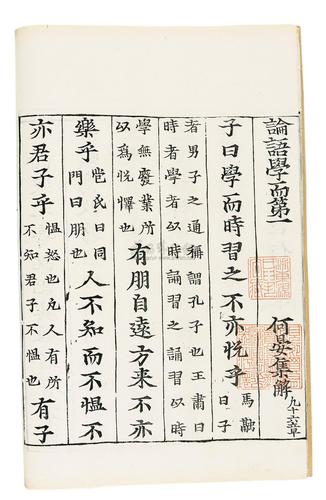 論語學而第一 何晏集解 凡十六章
子曰學而時習之不亦悅乎 馬融曰子
者男子之通稱謂孔子也王肅曰
時者學者以時誦習之誦習以時
學無廢業所以為悅懌也 有朋自遠方來不亦
樂乎 苞氏曰同門曰朋也 人不知而不慍不
亦君子乎 慍怒也凡人有所不知君子不慍也 有子